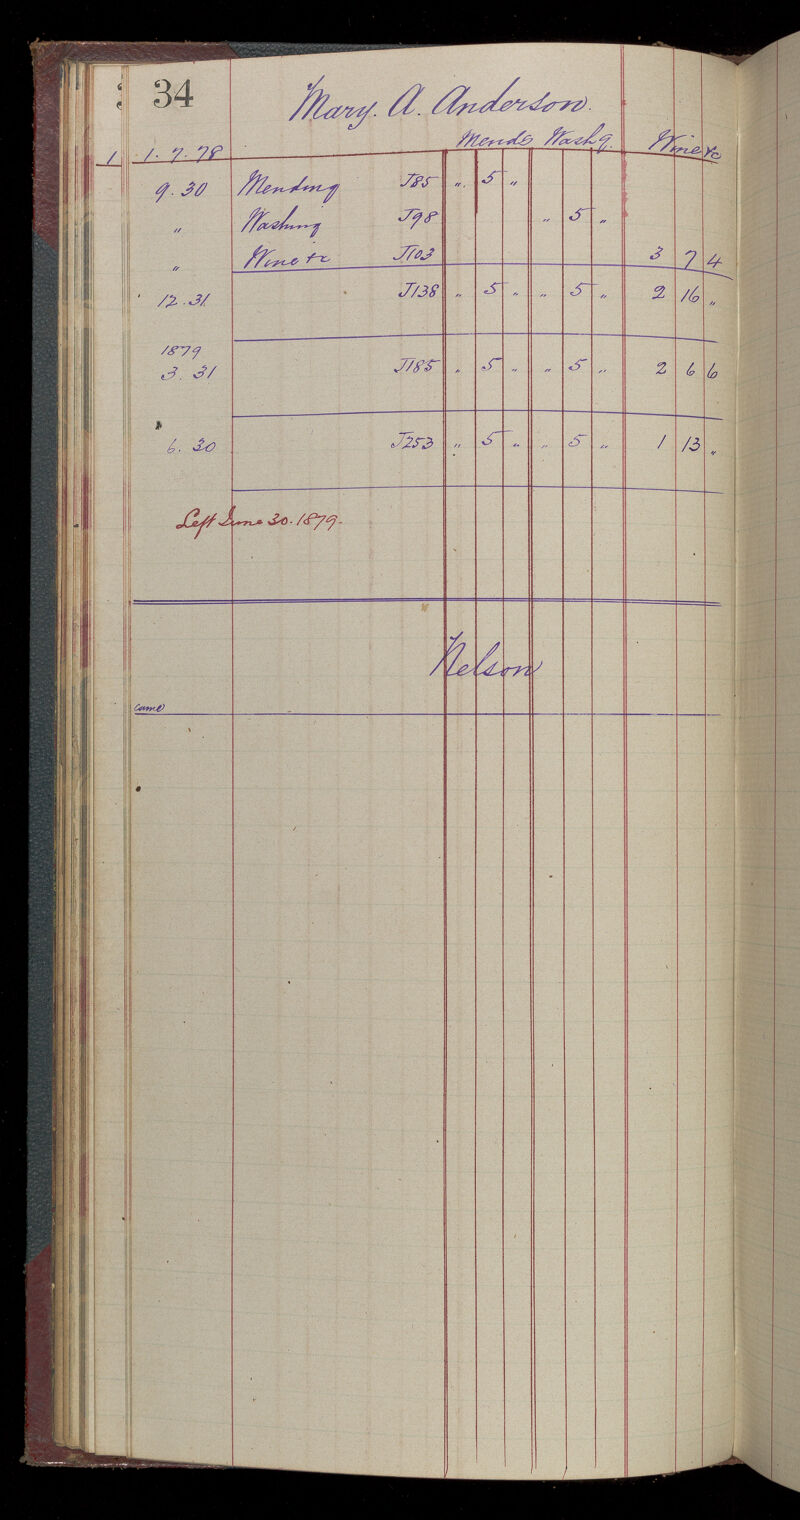 34
Mary. A. Anderson.
Mends Washg. Wine &c
1 1.7.78
9.30 Mending J85 ,, 5 ,,
,, Washing J98 ,, 5 ,,
,, Wine &c J103 3 7 4
12.31. J138 ,, 5 ,, ,, 5 ,, 2 16 ,,
1879
3.31 J185 ,, 5 ,, ,, 5 ,, 2 6 6
6.30 J253 ,, 5 ,, ,, 5 ,, 1 13 ,,
Left June 30. 1879.
Nelson
Came